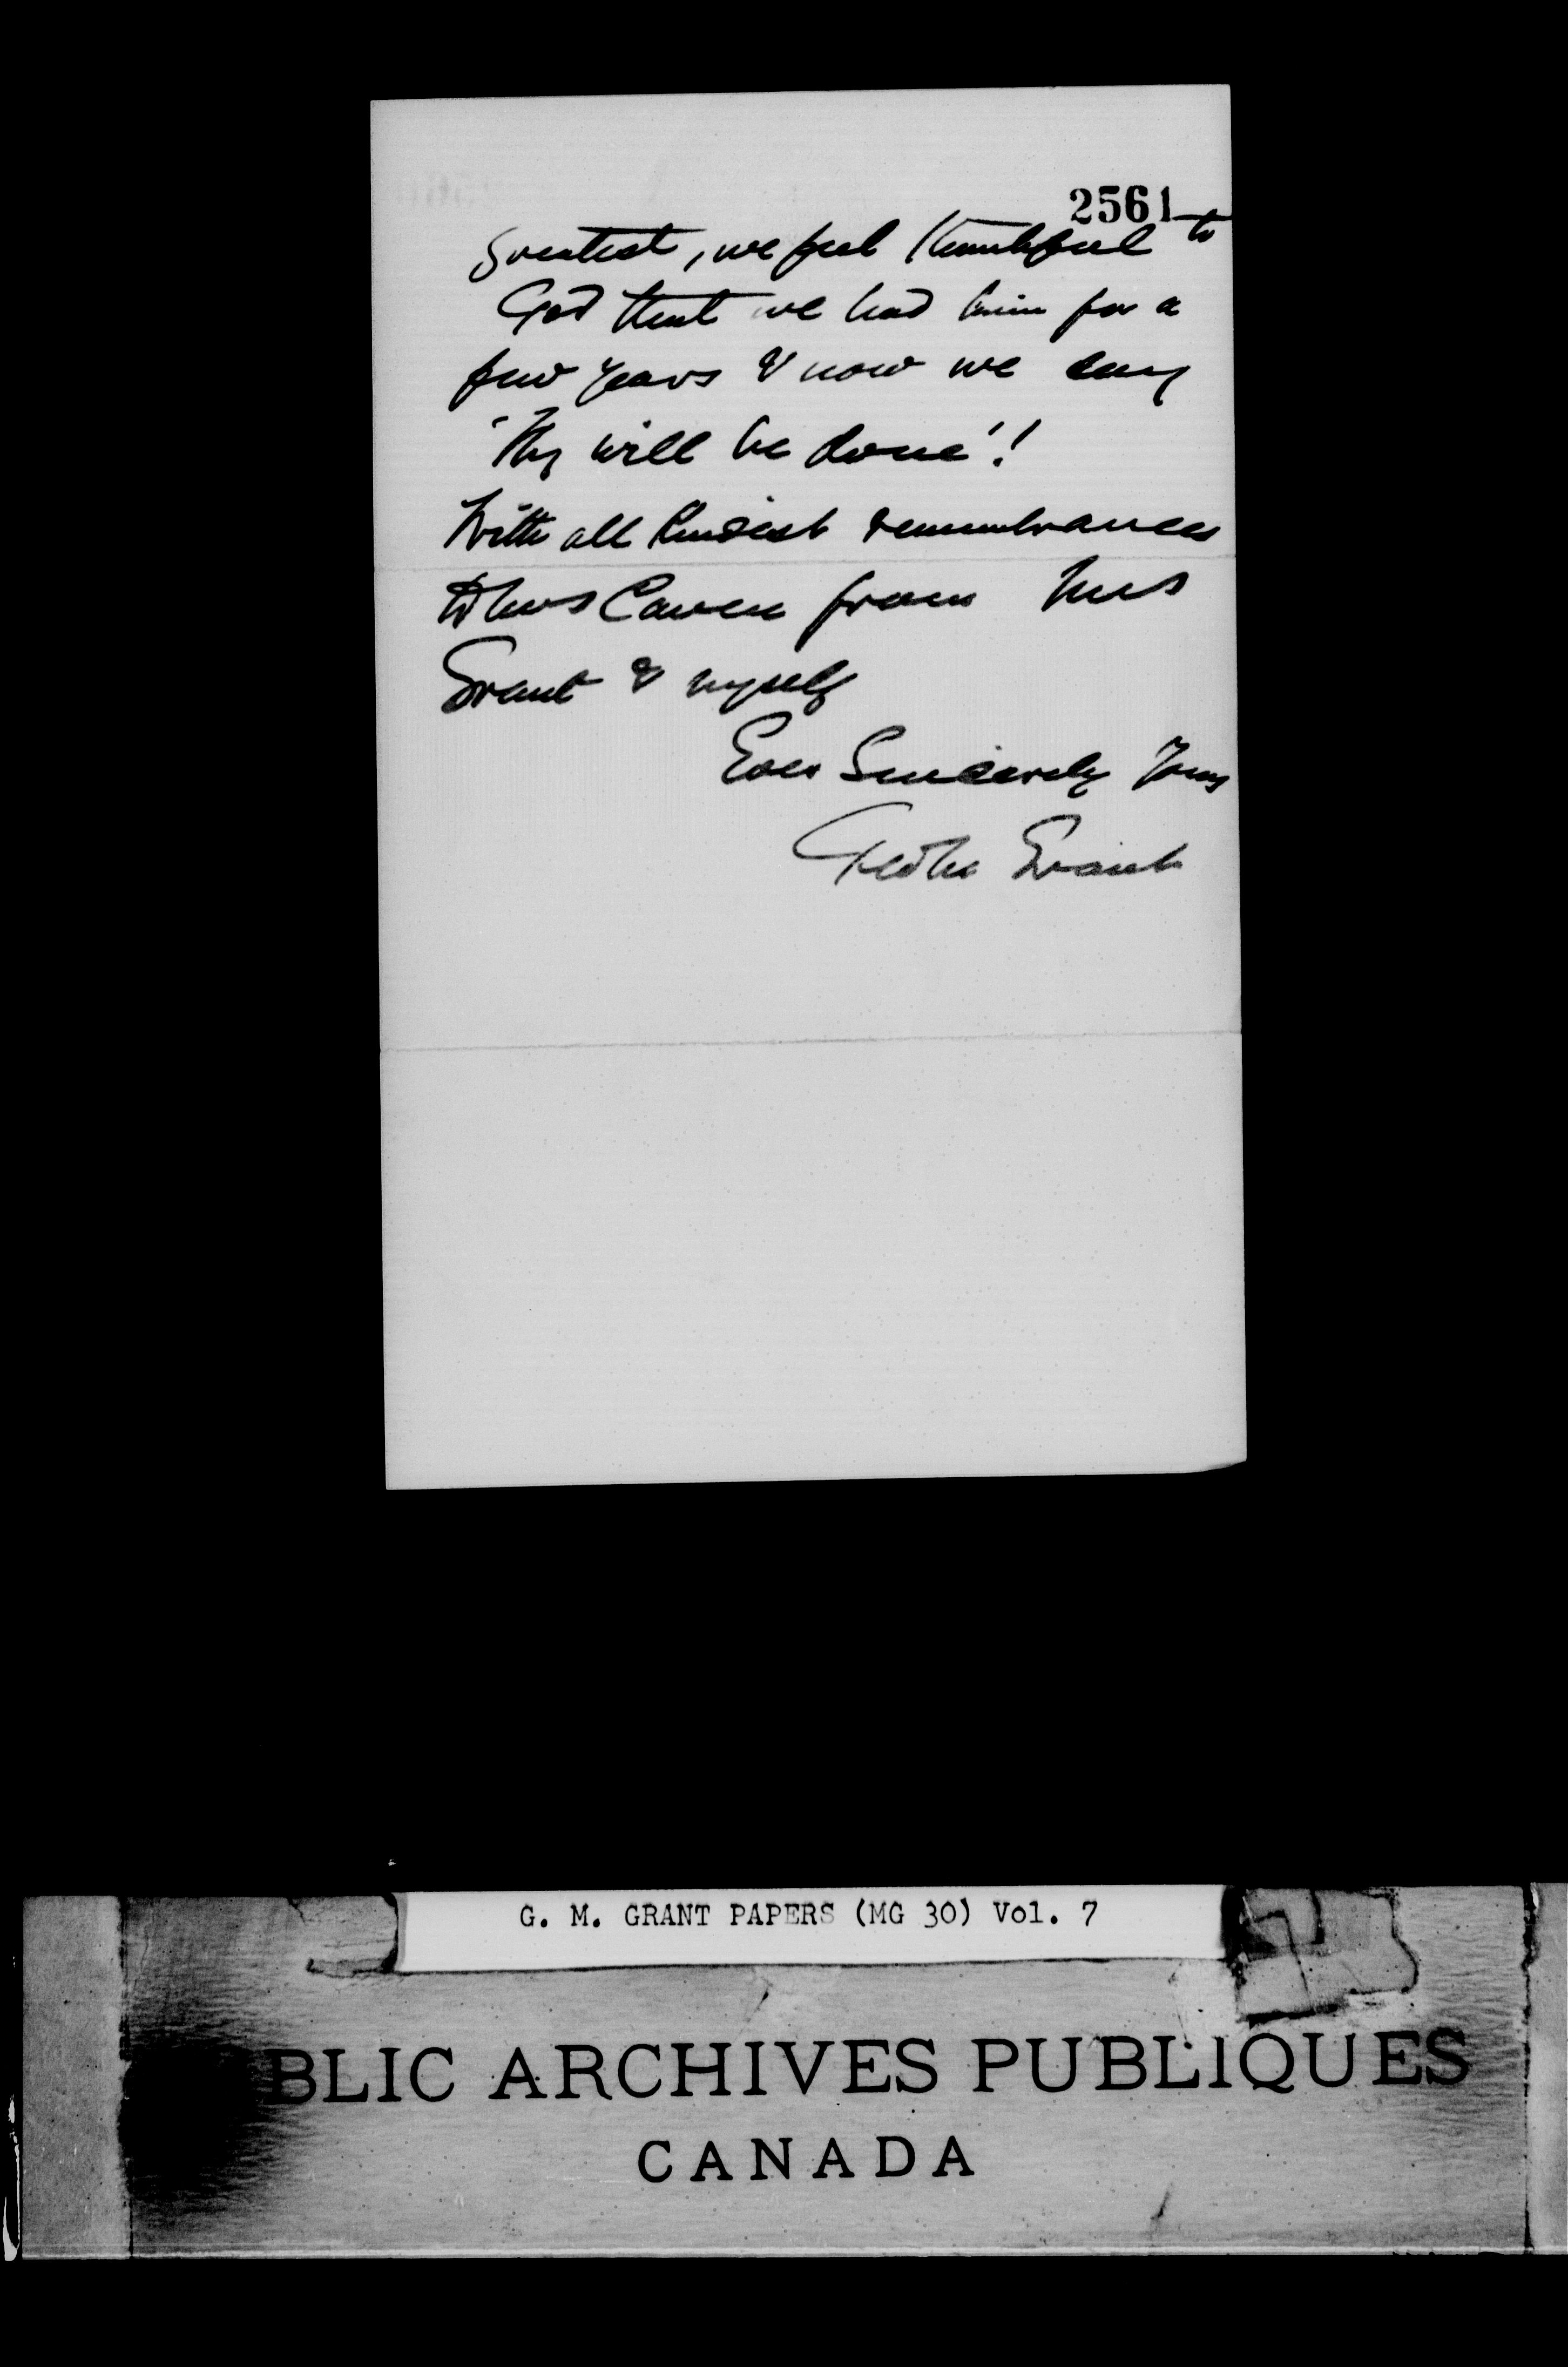 2561
greatest, we feel thankful to
God that we had him for a
few years & now we say
'Thy will be done'!
With all kindest remembrances
to Mrs Caven from Mrs
Grant & myself
Ever Sincerely Yours
Geo M Grant
G. M. GRANT PAPERS (MG 30) Vol. 7
BLIC ARCHIVES PUBLIQUES
CANADA